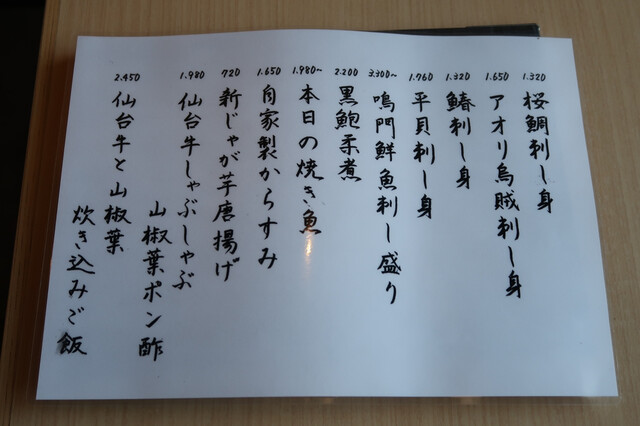 1.320 桜鯛刺し身
1.650 アオリ烏賊刺し身
1.320 鰆刺し身
1.760 平貝刺し身
3.300~ 鳴門鮮魚刺し盛り
2.200 黒鮑柔煮
1.980~ 本日の焼き魚
1.650 自家製からすみ
720 新じゃが芋唐揚げ
1.980 仙台牛しゃぶしゃぶ
山椒葉ポン酢
2.450 仙台牛と山椒葉
炊き込みご飯